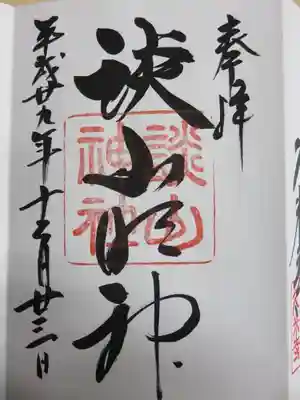 奉拝
談山明神
談山
神社
平成廿九年十二月廿三日